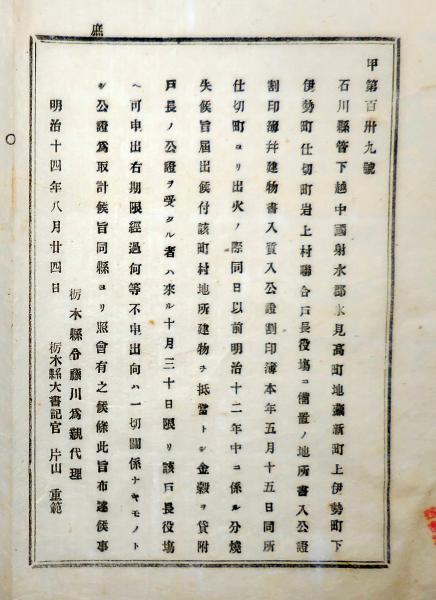 庶
甲第百卅九號
石川縣管下越中國射水郡氷見高町地藏新町上伊勢町下
伊勢町仕切町岩上村聯合戸長役塲ニ備置ノ地所書入公證
割印簿幷建物書入質入公證割印簿本年五月十五日同所
仕切町ヨリ出火ノ際同日以前明治十二年中ニ係ル分燒
失候旨届出候付該町村地所建物ヲ抵當トシ金穀ヲ貸附
戸長ノ公證ヲ受タル者ハ來ル十月三十日限リ該戸長役塲
ヘ可申出右期限經過何等不申出向ハ一切關係ナキモノト
シ公證爲取計候旨同縣ヨリ照會有之候條此旨布達候事
明治十四年八月廿四日
栃木縣令藤川爲親代理
栃木縣大書記官 片山重範